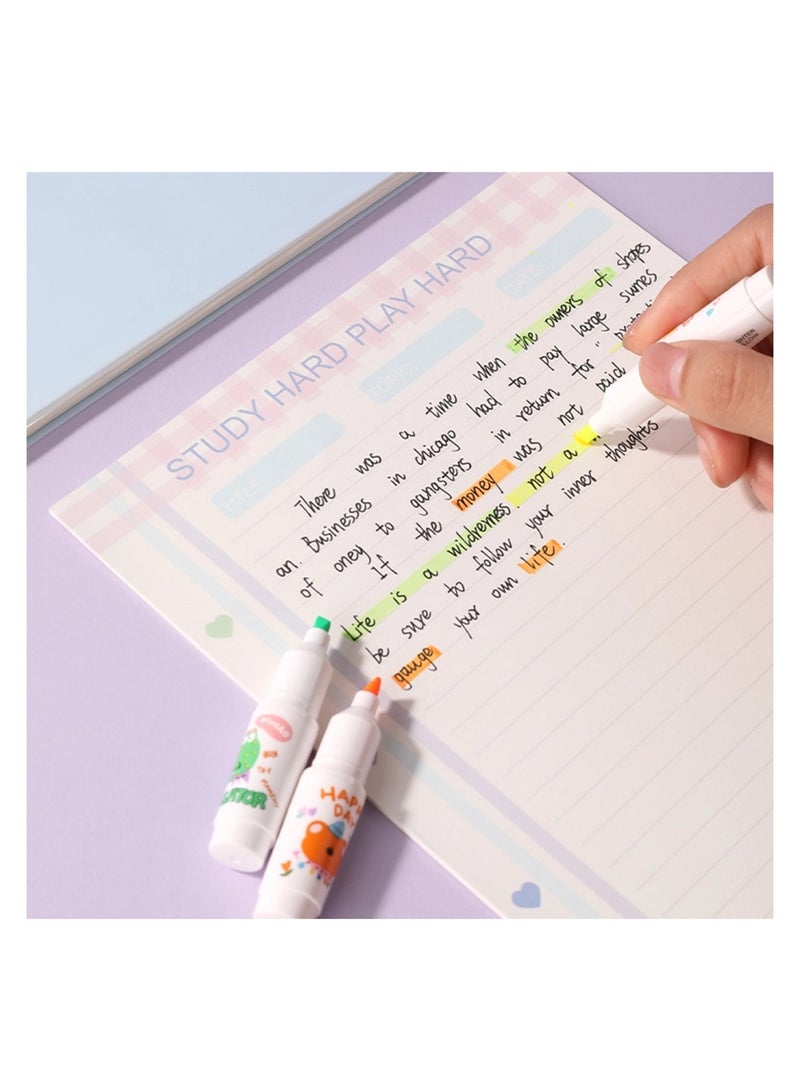 STUDY HARD PLAY HARD
TITLE:
TOPIC:
DATE:
There was a time when the owners of shopes
an. Businesses in chicago had to pay large sumes
of oney to gangsters in return for "
If the money was not paid
Life is a wilderness. not a
be sure to follow your inner thoughts
gauge your own life.
NI-HAO
HAPPY
DAY